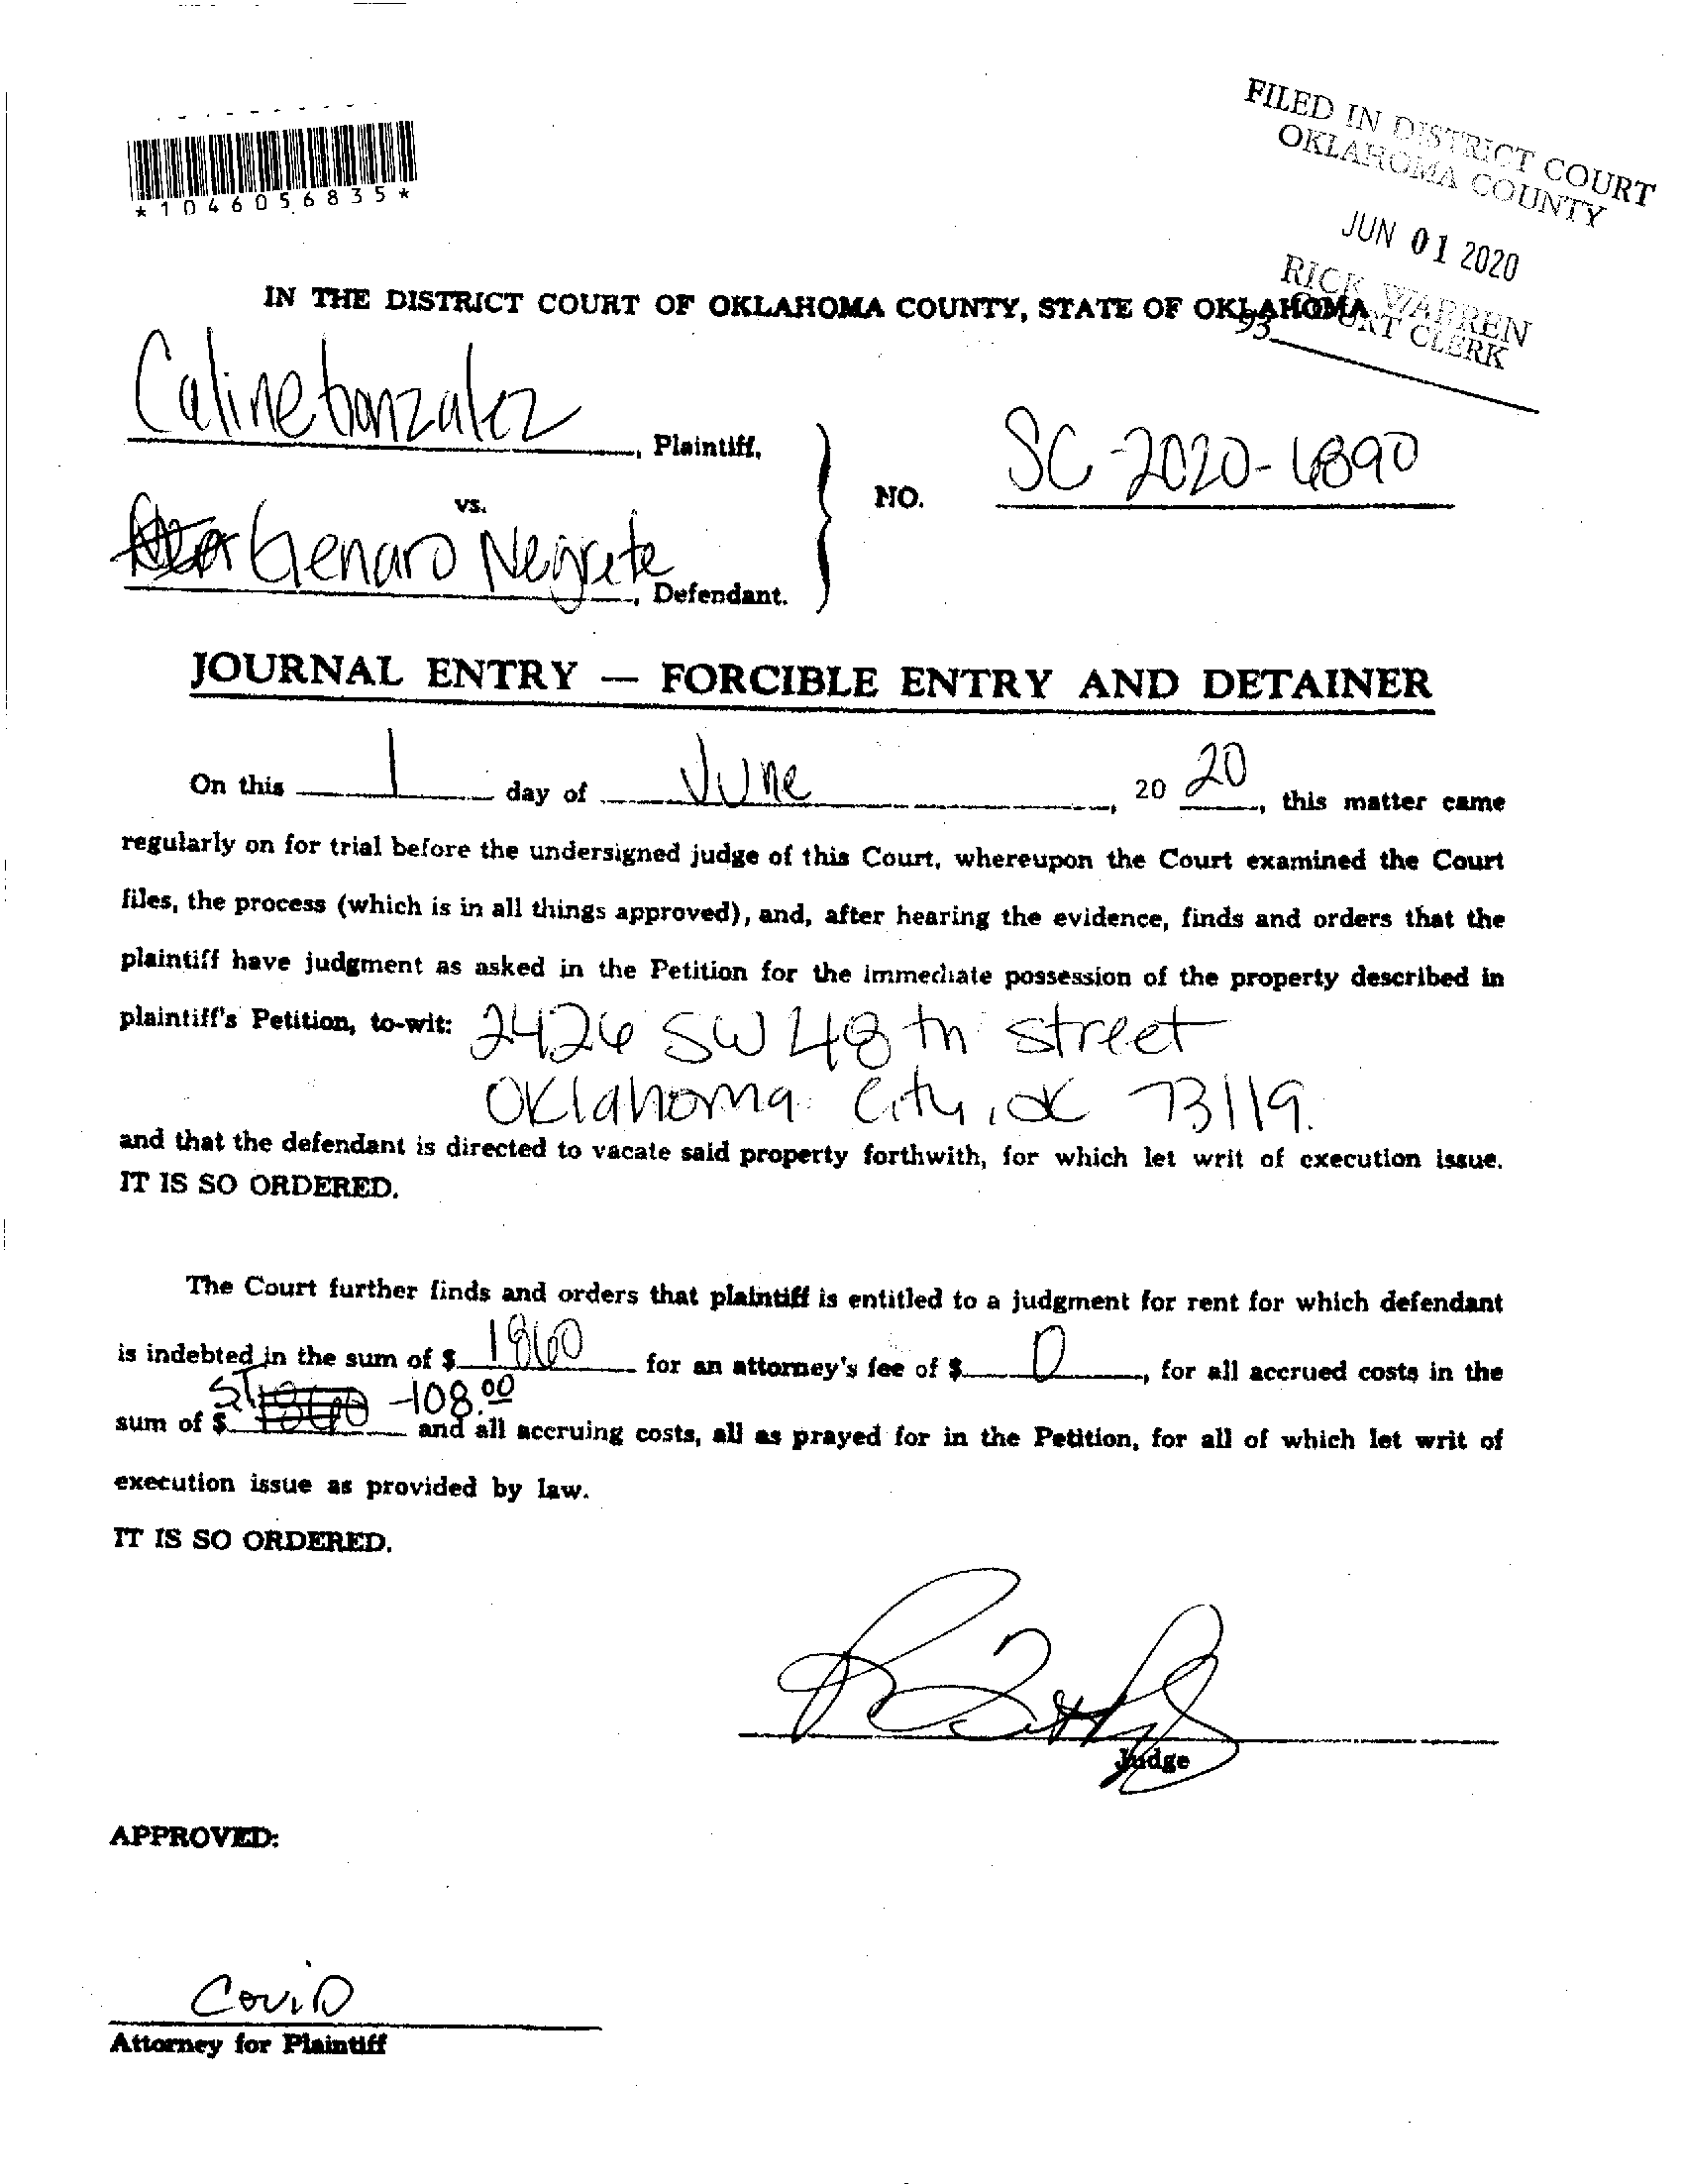 FILED IN DISTRICT COURT
OKLAHOMA COUNTY
JUN 01 2020
RICK WARREN
COURT CLERK
93
*1046056835*
IN THE DISTRICT COURT OF OKLAHOMA COUNTY, STATE OF OKLAHOMA
Caline Gonzalez, Plaintiff,
vs.
NO. SC-2020-4890
Genaro Negrete, Defendant.
JOURNAL ENTRY — FORCIBLE ENTRY AND DETAINER
On this 1 day of June, 20 20, this matter came
regularly on for trial before the undersigned judge of this Court, whereupon the Court examined the Court
files, the process (which is in all things approved), and, after hearing the evidence, finds and orders that the
plaintiff have judgment as asked in the Petition for the immediate possession of the property described in
plaintiff's Petition, to-wit: 2426 SW 48th Street
Oklahoma City, OK 73119.
and that the defendant is directed to vacate said property forthwith, for which let writ of execution issue.
IT IS SO ORDERED.
The Court further finds and orders that plaintiff is entitled to a judgment for rent for which defendant
is indebted in the sum of $ 1860 for an attorney's fee of $ 0, for all accrued costs in the
sum of $ 108.00 and all accruing costs, all as prayed for in the Petition, for all of which let writ of
execution issue as provided by law.
IT IS SO ORDERED.
Judge
APPROVED:
Covid
Attorney for Plaintiff